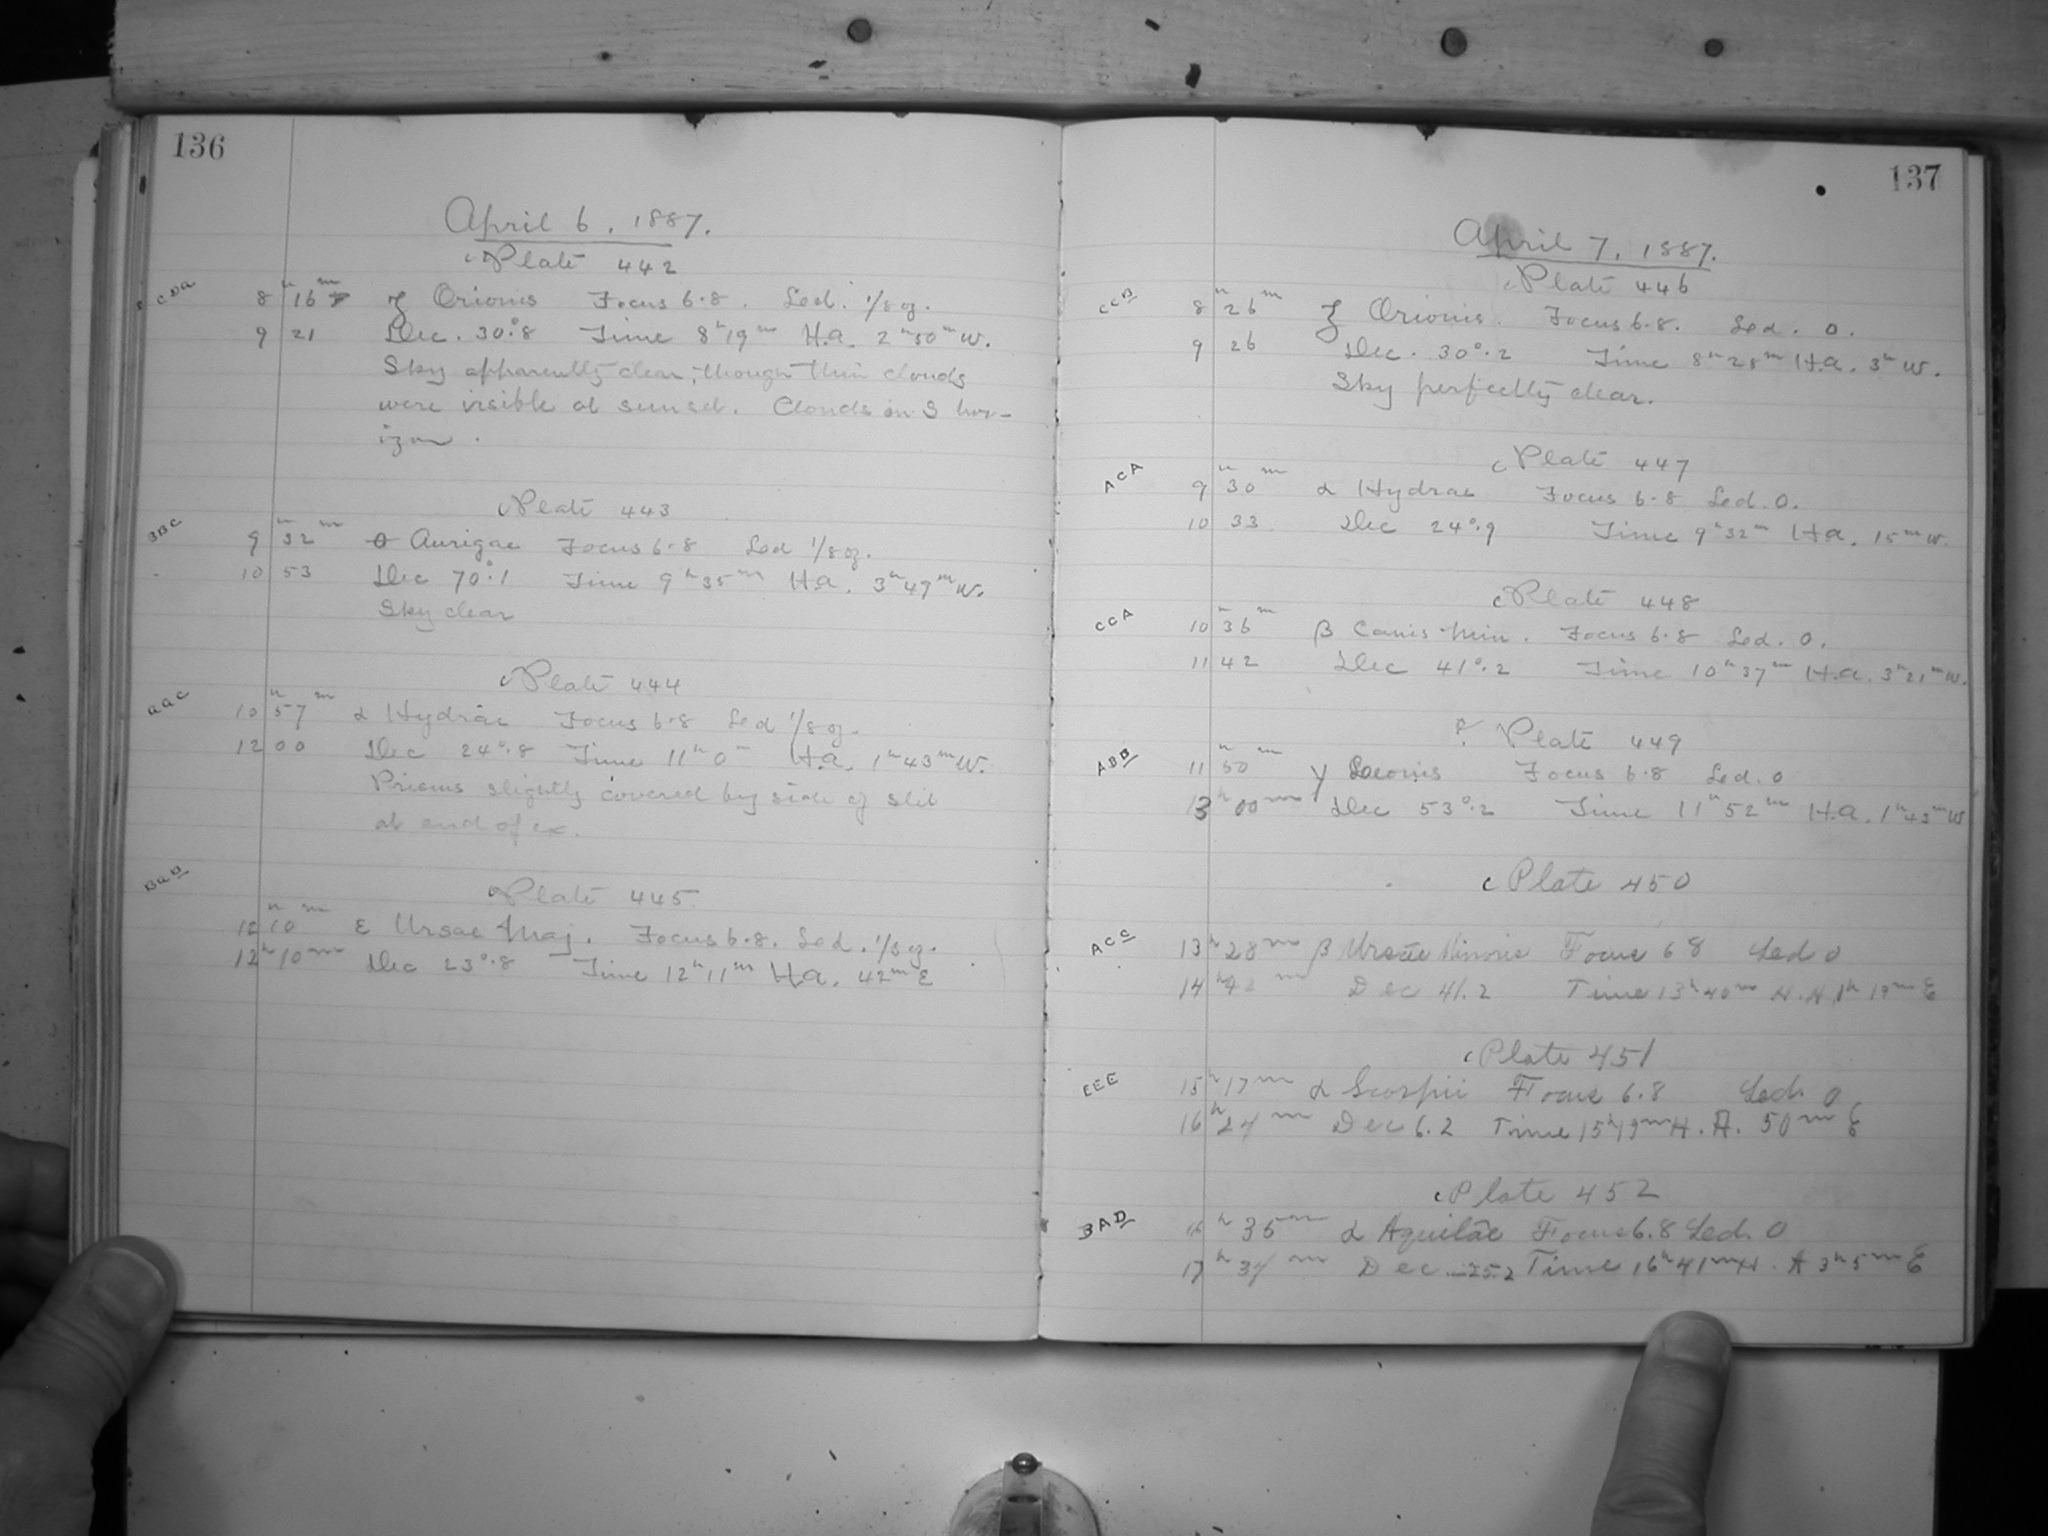 136
April 6, 1887.
Plate 442
CDa 8 16 ζ Orionis Focus 6.8. Led. 1/8 oz.
9 21 Dec. 30°.8 Time 8h19m H.a. 2h50m W.
Sky apparently clear, though thin clouds
were visible at sunset. Clouds in S hor-
izon.
Plate 443
BBC 9h 32m θ Aurigae Focus 6.8 Led 1/8 oz.
10 53 Dec 70°.1 Time 9h35m H.a. 3h47m W.
Sky clear
Plate 444
aac 10h 57m α Hydrae Focus 6.8 Led 1/8 oz.
12 00 Dec 24°.8 Time 11h0m H.a. 1h43m W.
Prisms slightly covered by side of slit
at end of ex.
BaB Plate 445.
12h 10m ε Ursae Maj. Focus 6.8. Led. 1/8 oz.
12h 10m Dec 23°.8 Time 12h11m H.a. 42m E
137
April 7, 1887.
Plate 446
CCB 8h 26m ζ Orionis. Focus 6.8. Led. 0.
9 26 Dec. 30°.2 Time 8h28m H.a. 3h W.
Sky perfectly clear.
Plate 447
ACA 9h 30m α Hydrae Focus 6.8 Led. 0.
10 33 Dec 24°.9 Time 9h32m H.a. 15m W.
Plate 448
CCA 10h 36m β Canis Min. Focus 6.8 Led. 0.
11 42 Dec 41°.2 Time 10h37m H.a. 3h21m W.
Plate 449
ABB 11h 50m γ Leonis Focus 6.8 Led. 0
13h 00m Dec 53°.2 Time 11h52m H.a. 1h43m W
Plate 450
ACC 13h 28m β Ursae Minoris Focus 6 8 Led 0
14h 42m Dec 41.2 Time 13h40m H.A. 1h 19m E
Plate 451
EEE 15h 17m α Scorpii Focus 6.8 Led. 0
16h 27m Dec 6.2 Time 15h19m H.A. 50m E
Plate 452
BAD 16h 35m α Aquilae Focus 6.8 Led. 0
17h 37m Dec 25.2 Time 16h41m H.A 3h5m E